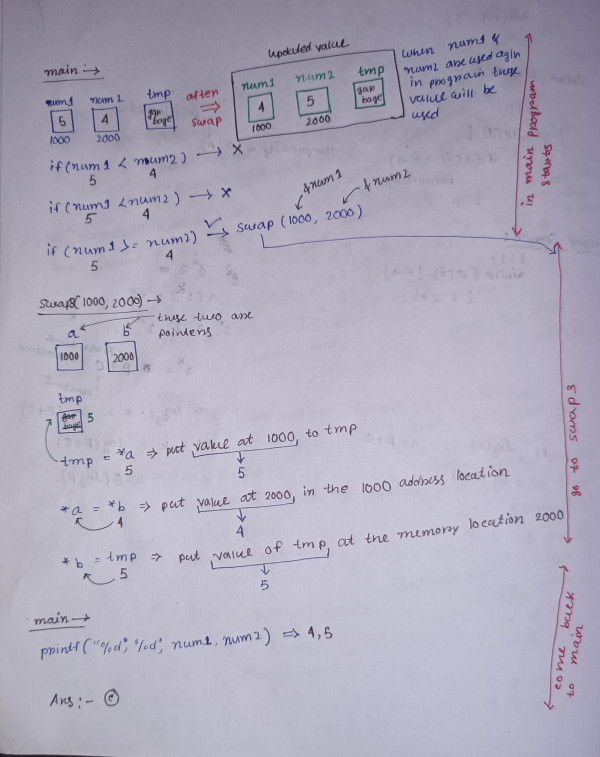 main →
updated value
num1 num2 tmp
5 4 gar bage
1000 2000
after
swap
num1 num2 tmp
4 5 gar bage
1000 2000
when num1 &
num2 are used agin
in program these
value will be
used
if (num1 < num2) → ×
5 4
if (num1 < num2) → ×
5 4
&num1 &num2
if (num1 >= num2) → swap (1000, 2000)
5 4
starts
in main program
swap3(1000, 2000) →
these two are
pointers
a b
1000 2000
tmp
gar bage 5
tmp = *a ⇒ put value at 1000, to tmp
5 5
*a = *b ⇒ put value at 2000, in the 1000 address location
4 4
*b = tmp ⇒ put value of tmp, at the memory location 2000
5 5
go to swap3
main →
printf("%d", "%d", num1, num2) ⇒ 4,5
come back
to main
Ans :- ©